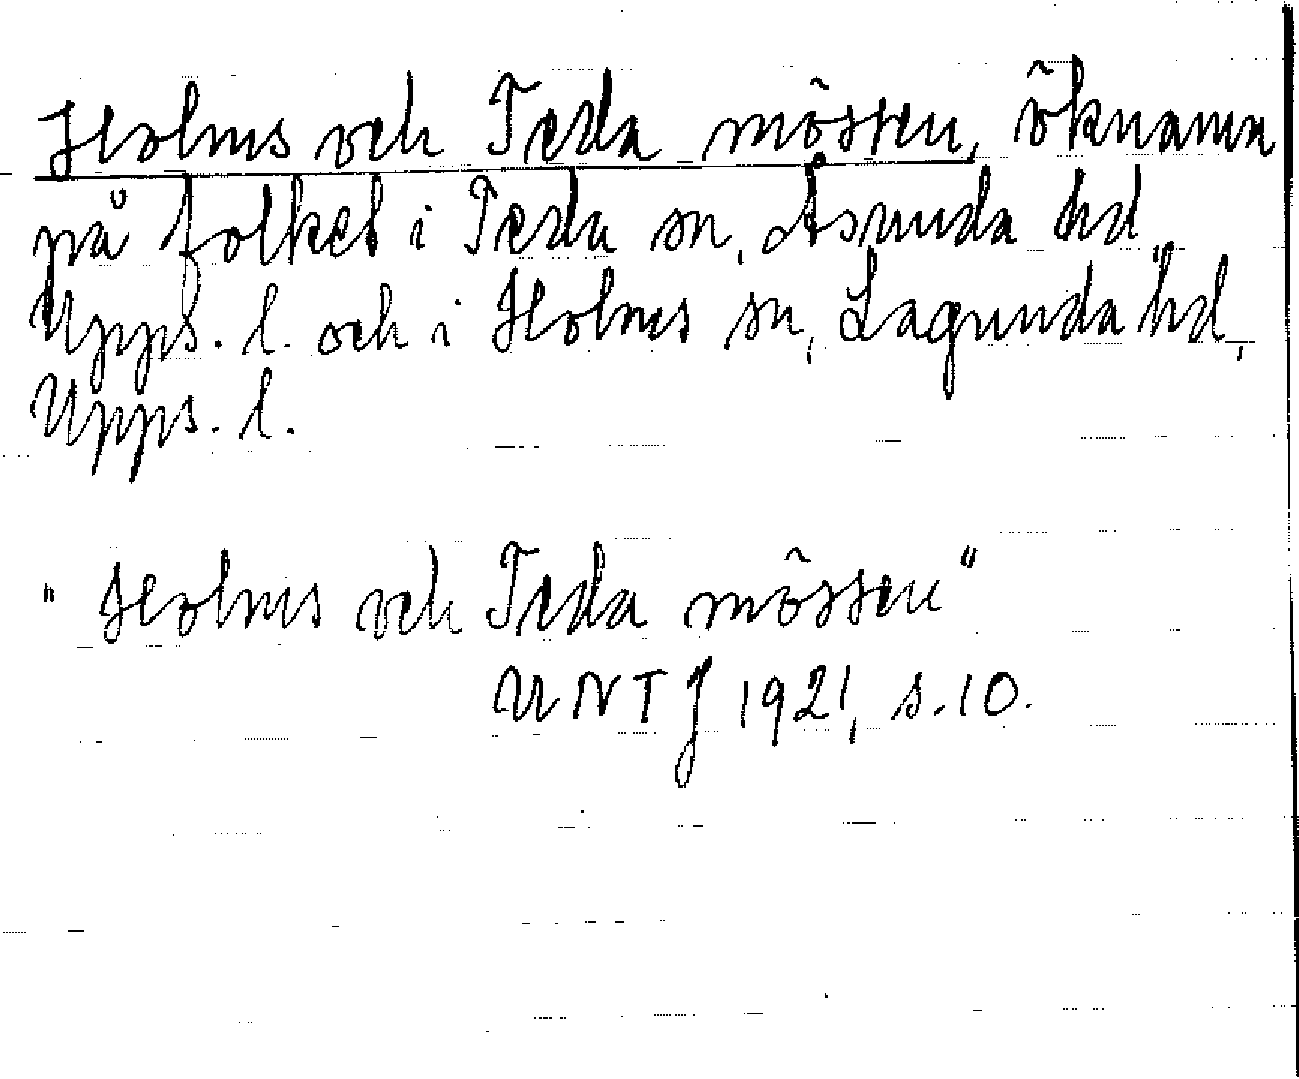 Holms och Teda mössen, öknamn
på folket i Teda sn, Åsunda hd
Upps. l. och i Holms sn, Lagunda hd,
Upps. l.
"Holms och Teda mössen"
UNTJ 1921, s. 10.